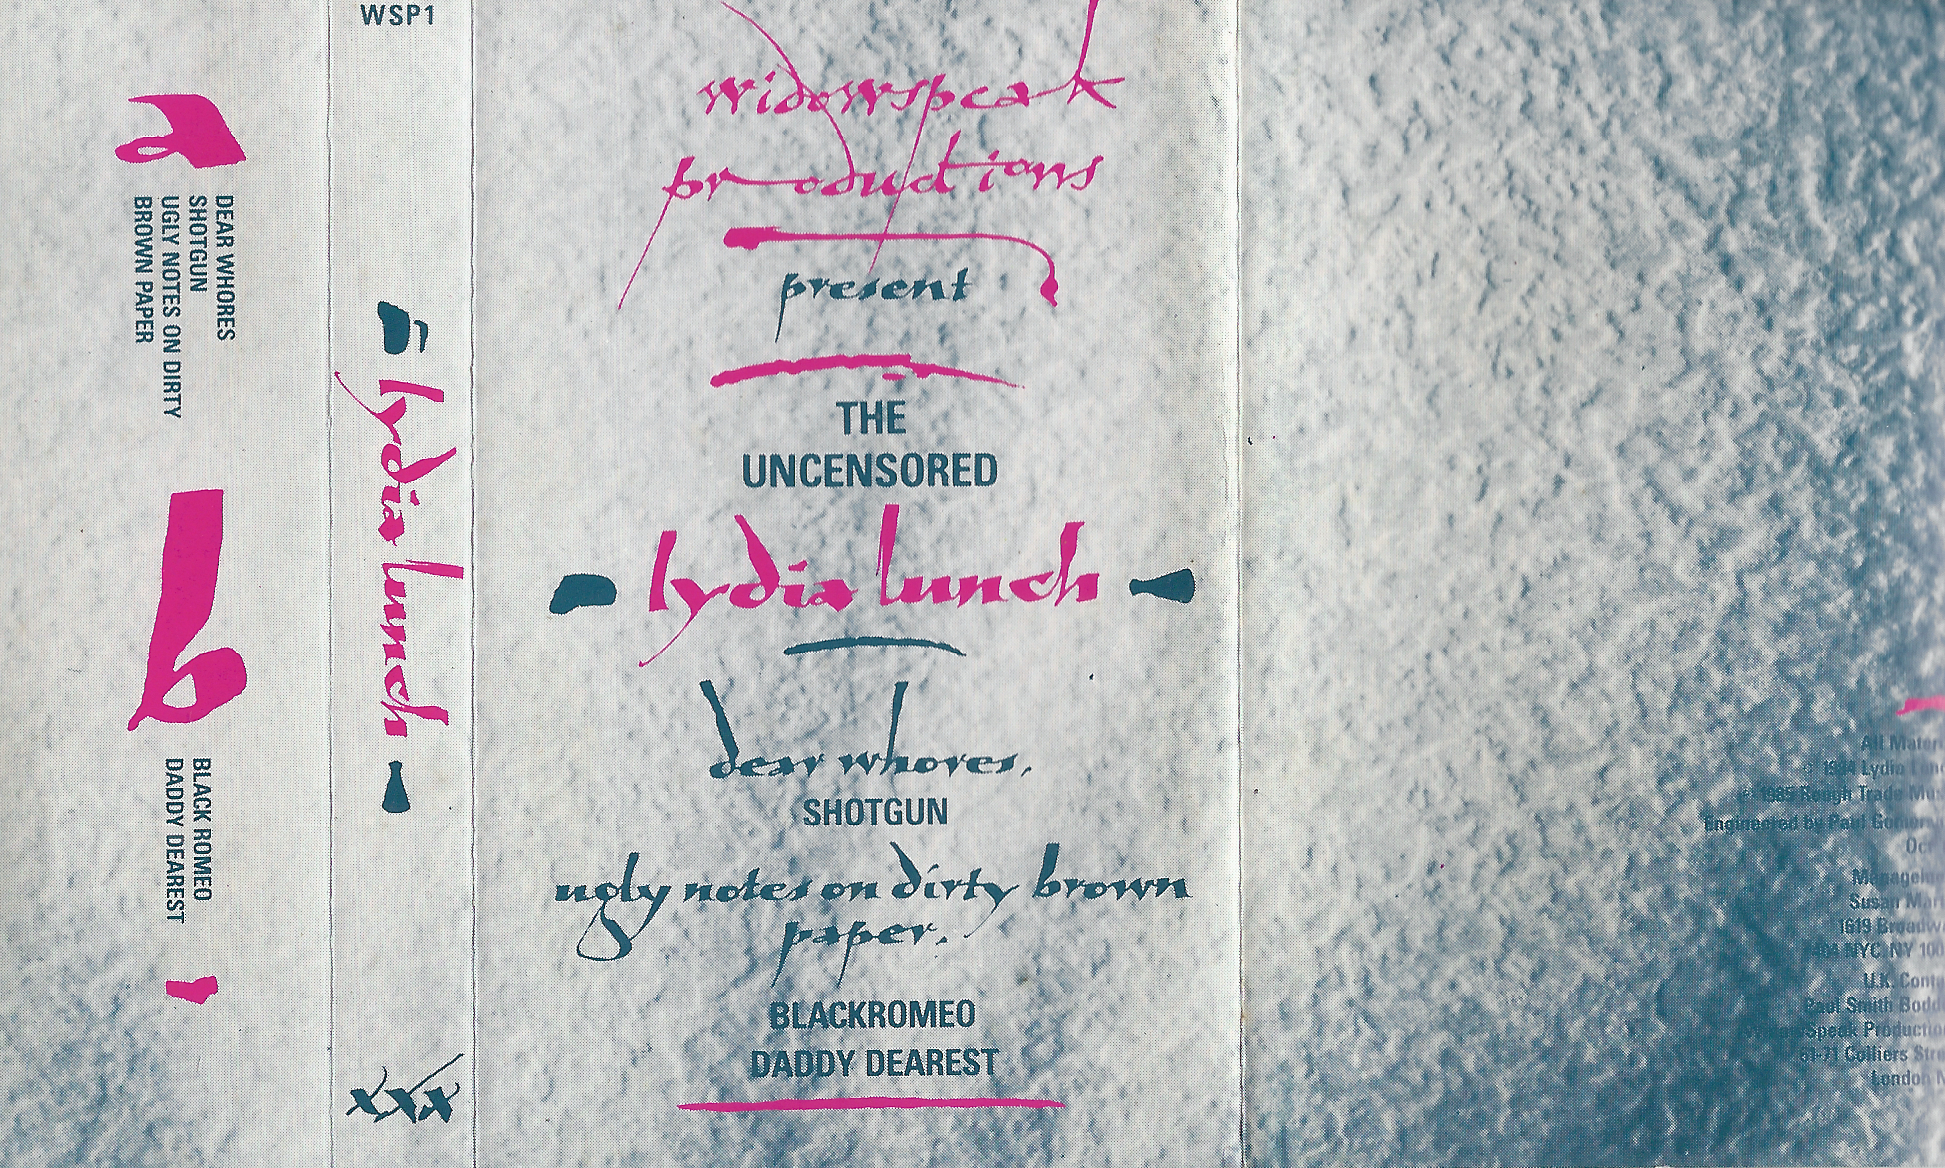 a
DEAR WHORES
SHOTGUN
UGLY NOTES ON DIRTY
BROWN PAPER
b
BLACK ROMEO
DADDY DEAREST
WSP1
lydia lunch
xxx
widowspeak
productions
present
THE
UNCENSORED
lydia lunch
dear whores,
SHOTGUN
ugly notes on dirty brown
paper.
BLACKROMEO
DADDY DEAREST
All
© 1984 Lydia
1985 Rough Trade
Engineered by Paul
Susan
1619
NYC NY
U.K.
Paul Smith
Speak
61-71 Colliers
London